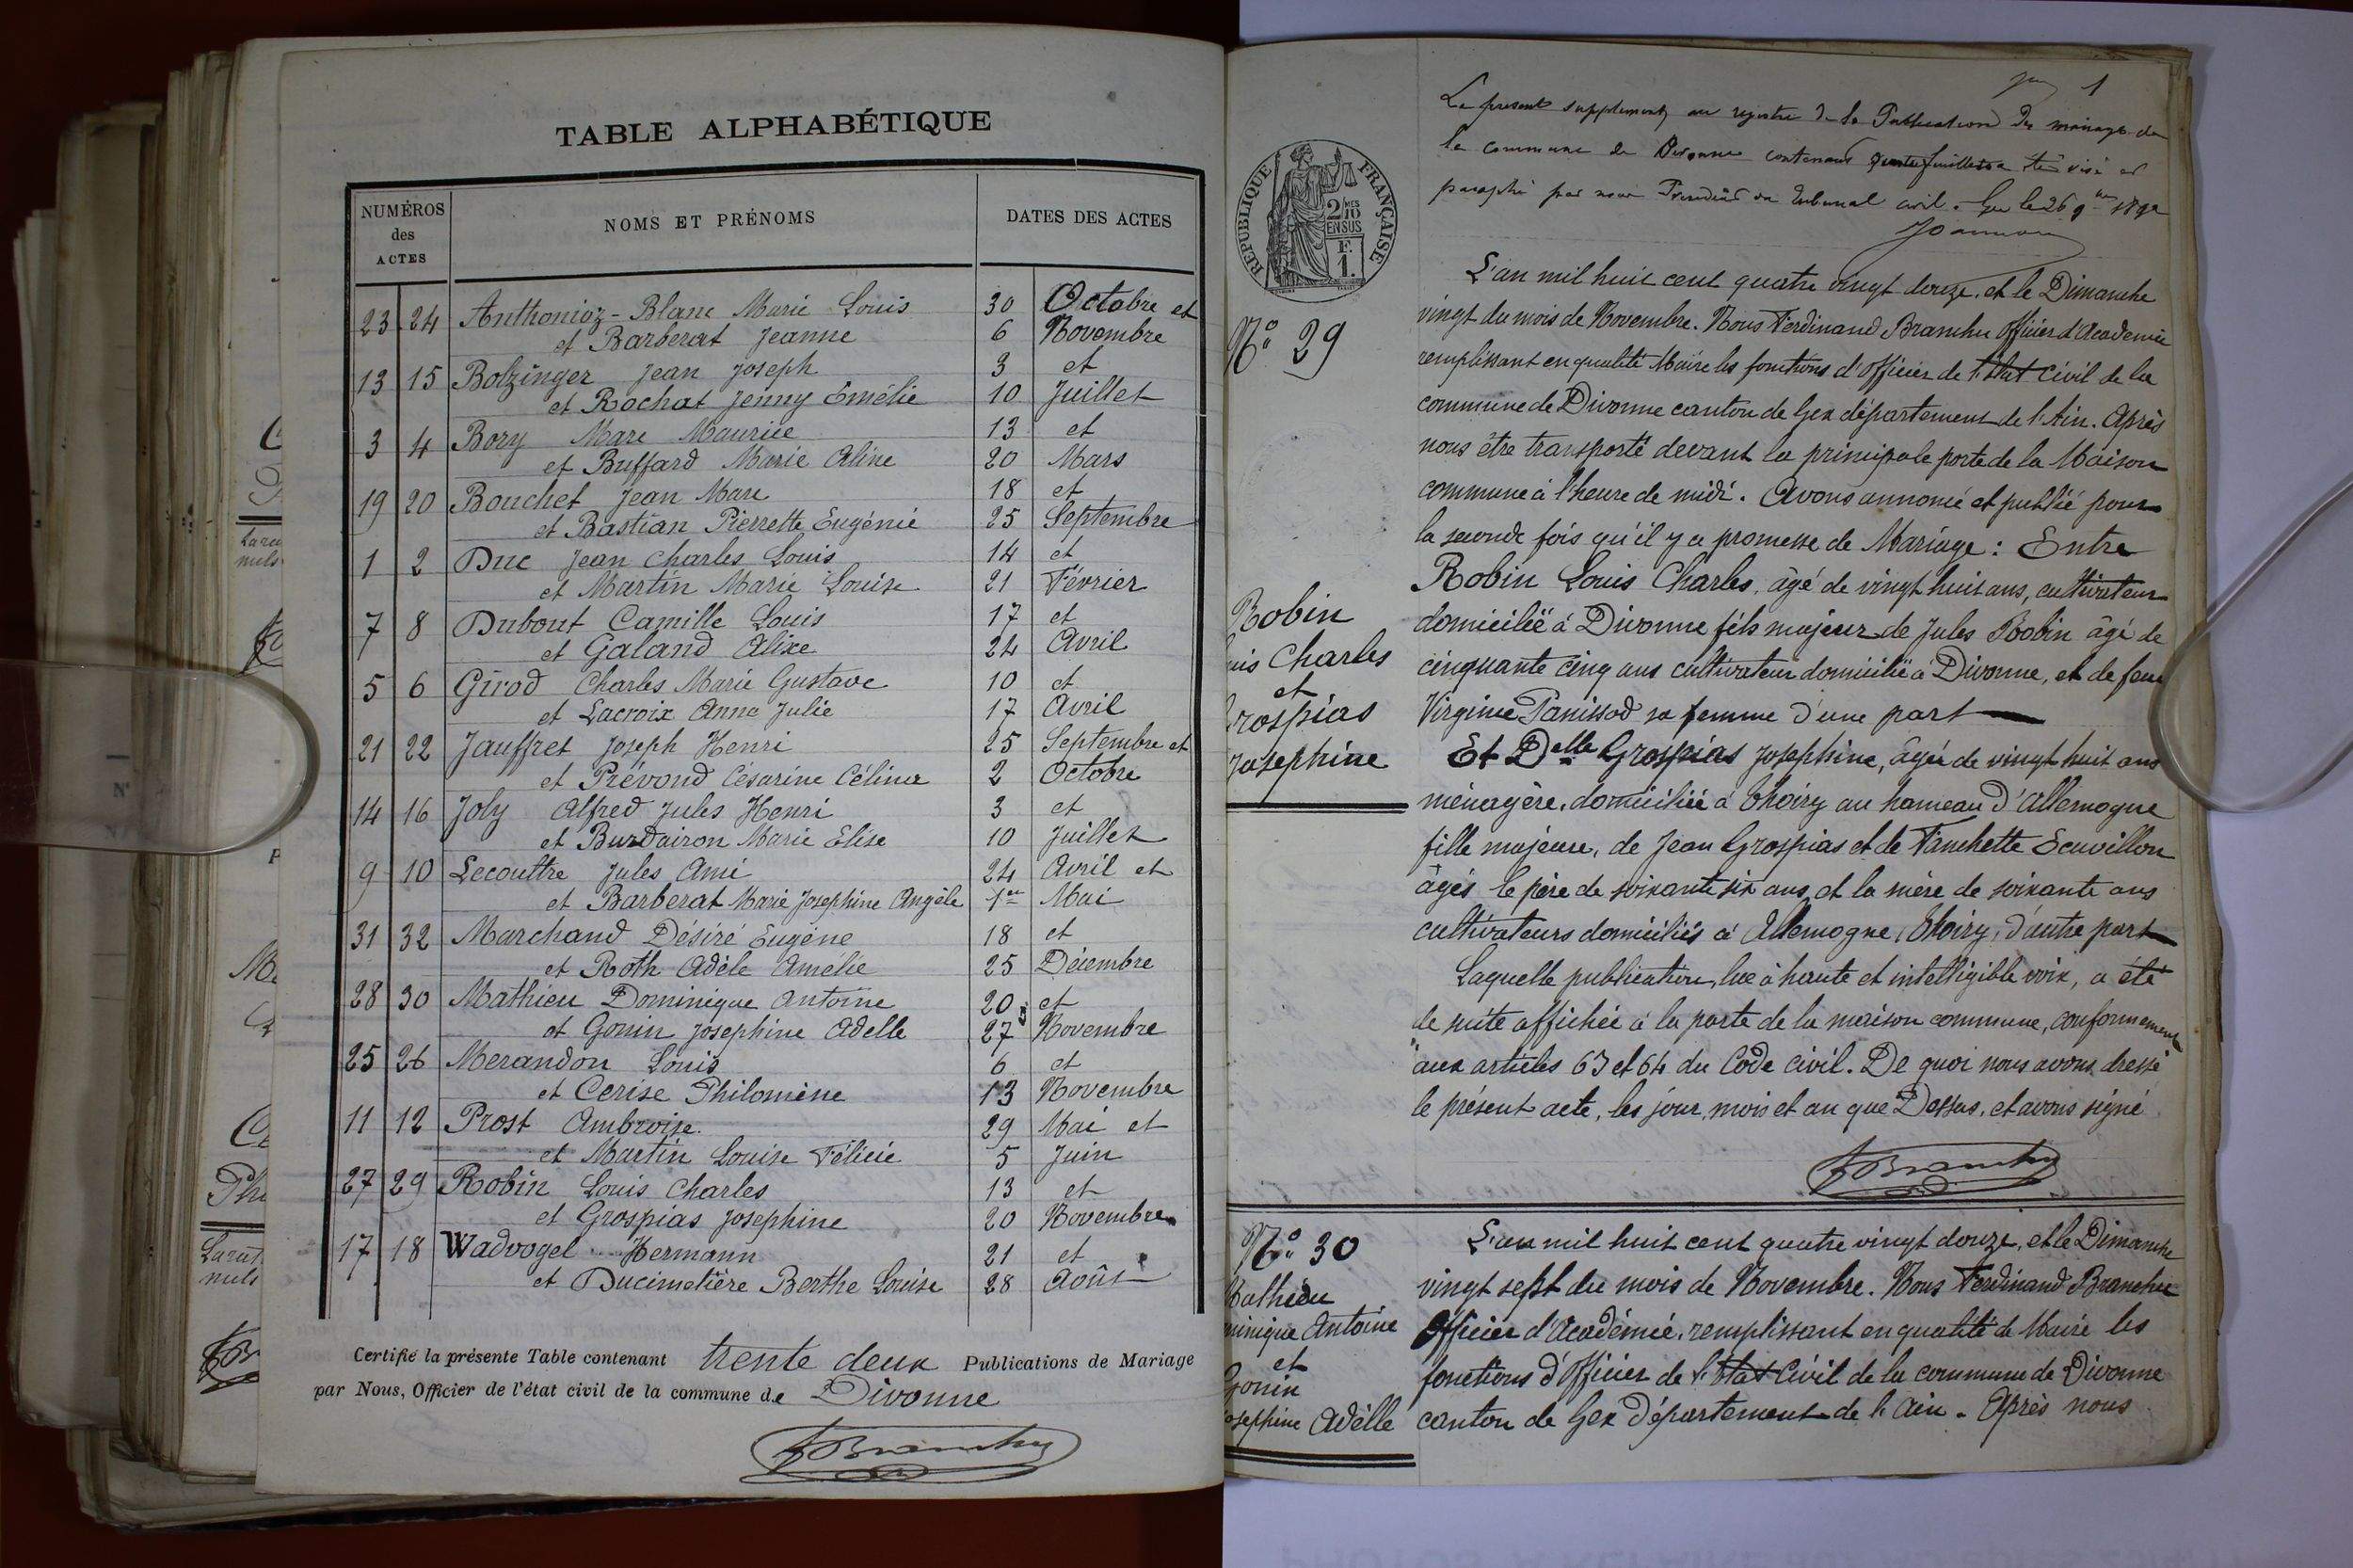 TABLE ALPHABÉTIQUE
NUMÉROS des ACTES
NOMS ET PRÉNOMS
DATES DES ACTES
23 24 Anthonioz-Blanc Marie Louis 30 Octobre et
et Barberat Jeanne 6 Novembre
13 15 Bolzinger Jean Joseph 3 et
et Rochat Jenny Emélie 10 Juillet
3 4 Bory Marc Maurice 13 et
et Buffard Marie Aline 20 Mars
19 20 Bouchet Jean Marc 18 et
et Bastian Pierrette Eugénie 25 Septembre
1 2 Duc Jean Charles Louis 14 et
et Martin Marie Louise 21 Février
7 8 Dubout Camille Louis 17 et
et Galand Alixe 24 Avril
5 6 Girod Charles Marie Gustave 10 et
et Lacroix Anna Julie 17 Avril
21 22 Jauffret Joseph Henri 25 Septembre et
et Prévond Césarine Célina 2 Octobre
14 16 Joly Alfred Jules Henri 3 et
et Burdairon Marie Elise 10 Juillet
9 10 Lecoultre Jules Ami 24 Avril et
et Barberat Marie Josephine Angèle 1er Mai
31 32 Marchand Désiré Eugène 18 et
et Roth Adèle Amélie 25 Décembre
28 30 Mathieu Dominique Antoine 20 et
et Gonin Josephine Adelle 27 Novembre
25 26 Merandon Louis 6 et
et Cerise Philomène 13 Novembre
11 12 Prost Ambroise 29 Mai et
et Martin Louise Félicie 5 Juin
27 29 Robin Louis Charles 13 et
et Grospias Josephine 20 Novembre
17 18 Wadvogel Hermann 21 et
et Ducimetière Berthe Louise 28 Août
Certifié la présente Table contenant trente deux Publications de Mariage
par Nous, Officier de l'état civil de la commune de Divonne
FBranchu
1
Le present supplement au registre de la Publication des mariages de
la commune de Divonne contenant feuillets a été visé et
paraphé par nous Président du Tribunal civil. Gex le 26 9bre 1892
RÉPUBLIQUE FRANÇAISE
2 MES
10
EN SUS
F.
1.
No 29
Robin
uis Charles
et
Grospias
Josephine
L'an mil huit cent quatre vingt douze, et le Dimanche
vingt du mois de Novembre. Nous Ferdinand Branchu Officier d'Academie
remplissant en qualité Maire les fonctions d'officier de l'Etat civil de la
commune de Divonne canton de Gex département de l'Ain. Après
nous être transporté devant la principale porte de la Maison
commune à l'heure de midi. Avons annoncé et publié pour
la seconde fois qu'il y a promesse de Mariage : Entre
Robin Louis Charles, âgé de vingt huit ans, cultivateur
domicilié à Divonne fils majeur de Jules Robin âgé de
cinquante cinq ans cultivateur domicilié à Divonne, et de feue
Virginie Panissod sa femme d'une part
Et Delle Grospias Josephine, âgée de vingt huit ans
ménagère, domiciliée à Thoiry au hameau d'Allemogne
fille majeure, de Jean Grospias et de Fanchette Ecuvillon
âgés le père de soixante six ans et la mère de soixante ans
cultivateurs domiciliés à Allemogne, Thoiry, d'autre part
Laquelle publication, lue à haute et intelligible voix, a été
de suite affichée à la porte de la maison commune, conformement
aux articles 63 et 64 du Code civil. De quoi nous avons dressé
le présent acte, les jour, mois et an que Dessus, et avons signé
FBranchu
No 30
Mathieu
minique Antoine
et
Gonin
osephine Adèlle
L'an mil huit cent quatre vingt douze, et le Dimanche
vingt sept du mois de Novembre. Nous Ferdinand Branchu
Officier d'Académie, remplissant en qualité de Maire les
fonctions d'Officier de l'Etat Civil de la commune de Divonne
canton de Gex Département de l'Ain. Après nous